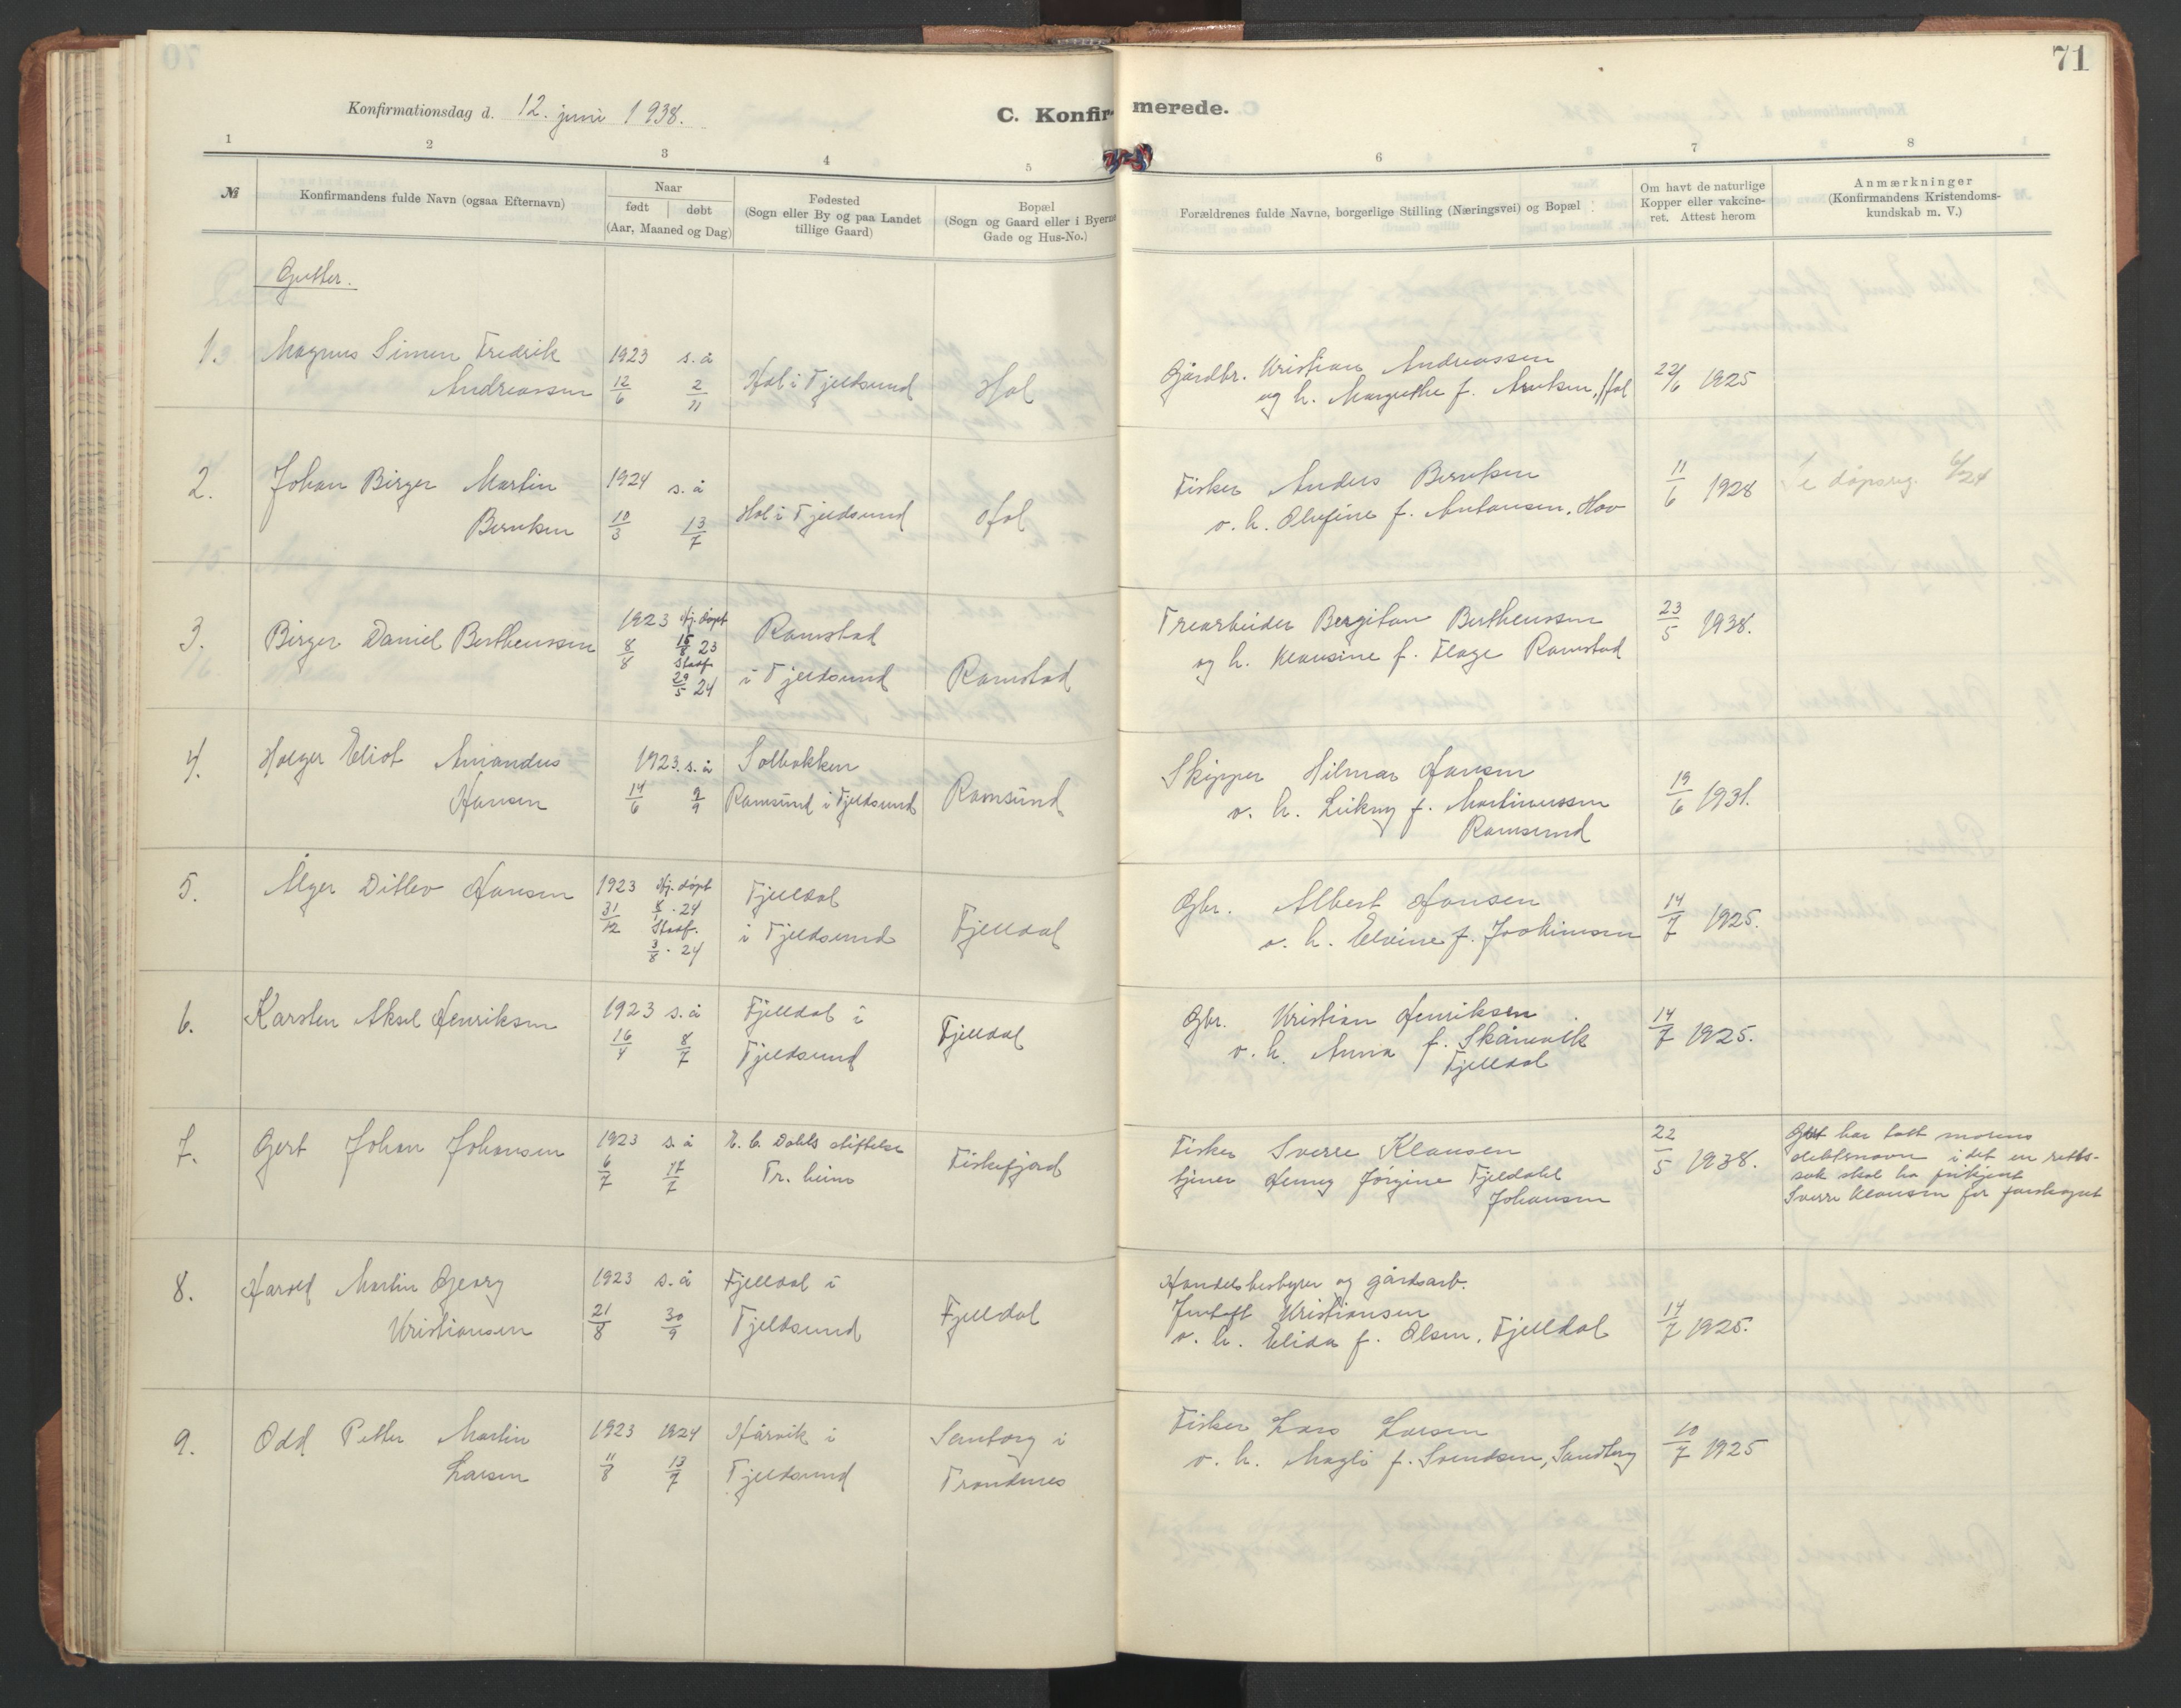 71
Konfirmationsdag d. 12. juni 1938.
C. Konfirmerede.
1 2 3 4 5 6 7 8
№
Konfirmandens fulde Navn (ogsaa Efternavn)
Naar
født | døbt
(Aar, Maaned og Dag)
Fødested
(Sogn eller By og paa Landet
tillige Gaard)
Bopæl
(Sogn og Gaard eller i Byerne
Gade og Hus-No.)
Forældrenes fulde Navne, borgerlige Stilling (Næringsvei) og Bopæl
Om havt de naturlige
Kopper eller vakcine-
ret. Attest herom
Anmærkninger
(Konfirmandens Kristendoms-
kundskab m. V.)
Gutter.
1. Magnus Simen Fredrik
Andreassen
1923 s. å
12/6 2/11
Hol i Tjeldsund
Hol
Gårdbr. Kristian Andreassen
og h. Margrethe f. , Hol
22/6 1925
2. Johan Birger Martin
Berntsen
1924 s. å
10/3 13/7
Hol i Tjeldsund
Hol
Fisker Anders Berntsen
o. h. Olufine f. Antonsen. Hov
11/6 1928
e dåpsreg. 6/24
3. Birger Daniel Bertheussen
1923 Hj. døpt
8/8 15/8 23
Stadf.
29/5 24
Ramstad
i Tjeldsund
Ramstad
Trearbeider Bergitan Bertheussen
og h. Klausine f. Flage Ramstad
23/5 1938.
4. Holger Eliot Amandus
Hansen
1923. s. å
14/6 9/9
Solbakken
Ramsund i Tjeldsund
Ramsund
Skipper Hilmar Hansen
o. h. f. Martinussen
Ramsund
19/6 1931.
5. Alger Ditlev Hansen
1923 Hj. døpt
31/12 8/1 . 24
Stadf.
3/8 . 24
Fjelldal
i Tjeldsund
Fjelldal
Gbr. Albert Hansen
o. h. Elvine f. Joakimsen
14/7 1925.
6. Karsten Aksel Henriksen
1923 s. å
16/4 8/7
Fjelldal i
Tjeldsund
Fjelldal
Gbr. Kristian Henriksen
o. h. Anna f. Skånvik
Fjelldal
14/7 1925.
7. Gert Johan Johansen
1923 s. å
6/7 17/7
E. C. Dahls stiftelse
Tr. heim
Fiskefjord
Fisker Sverre Klausen
tjener Henny Jørgine Fjeldahl
Johansen
22/5 1938.
Gert har tatt morens
slektsnavn idet en retts-
sak skal ha frikjent
Sverre Klausen for farskapet
8. Harold Martin Georg
Kristiansen
1923 s. å
21/8 30/9
Fjelldal i
Tjeldsund
Fjelldal
Handelsbestyrer og gårdsarb.
Kristiansen
o. h. Elida f. Olsen, Fjelldal
14/7 1925.
9. Odd Petter Martin
Larsen
1923 1924
11/8 13/7
Hårvik i
Tjeldsund
Sandtorg i
Trondenes
Fisker Lars Larsen
o. h. Magli f. Svendsen, Sandtorg
10/7 1925